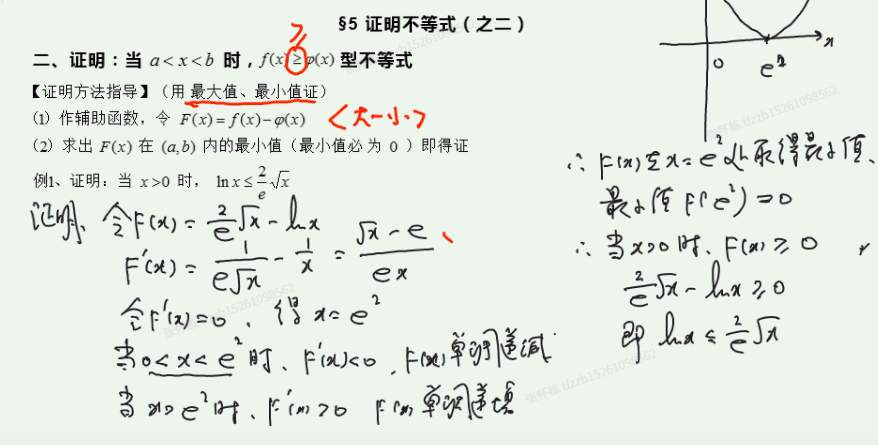 §5 证明不等式(之二)
二、证明:当 a<x<b 时,f(x)≥φ(x) 型不等式
≥
【证明方法指导】(用 最大值、最小值证)
(1) 作辅助函数,令 F(x)=f(x)-φ(x) <大-小>
(2) 求出 F(x) 在 (a,b) 内的最小值(最小值必为 0)即得证
例1、证明:当 x>0 时, ln x≤2/e√x
证明、令F(x)=2/e√x-lnx
F'(x)=1/(e√x)-1/x=(√x-e)/(ex)
令F'(x)=0、得 x=e²
当0<x<e²时、F'(x)<0、F(x)单调递减
当x>e²时、F'(x)>0 F(x)单调递增
0 e² x
∴F(x)在x=e²处取得最小值、
最小值F(e²)=0
∴当x>0时、F(x)≥0
2/e√x-lnx≥0
即 lnx≤2/e√x
张怀栋 tfzzb15261098562